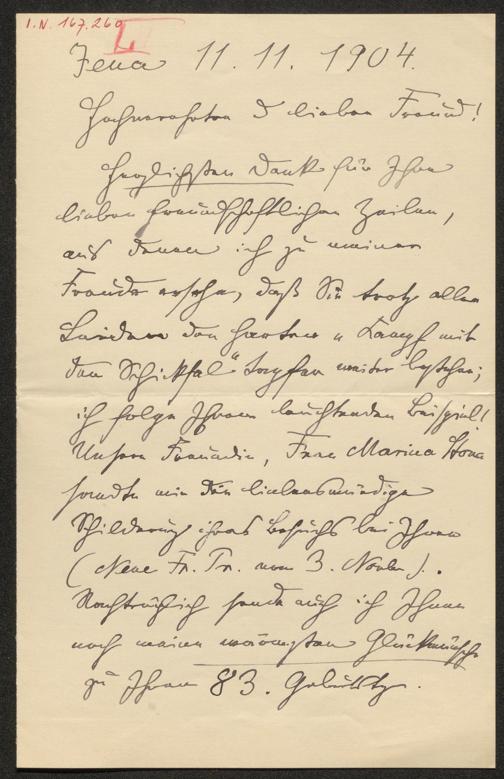 I.N. 167.260
Jena 11. 11. 1904.
Hochverehrter & lieber Freund!
Herzlichsten Dank für Ihre
lieben freundschaftlichen Zeilen,
aus denen ich zu meiner
Freude ersehe, daß Sie trotz aller
Leiden den harten „Kampf mit
dem Schicksal“ tapfer weiter bestehen;
ich folge Ihrem leuchtenden Beispiel!
Unsere Freundin, Frau Marina
sandte mir die liebenswürdige
Schilderung ihres Besuchs bei Ihnen
(Neue Fr. Pr. vom 3. Novbr.).
Nachträglich sende auch ich Ihnen
noch meine wärmsten Glückwünsche
zu Ihrem 83. Geburtstg.